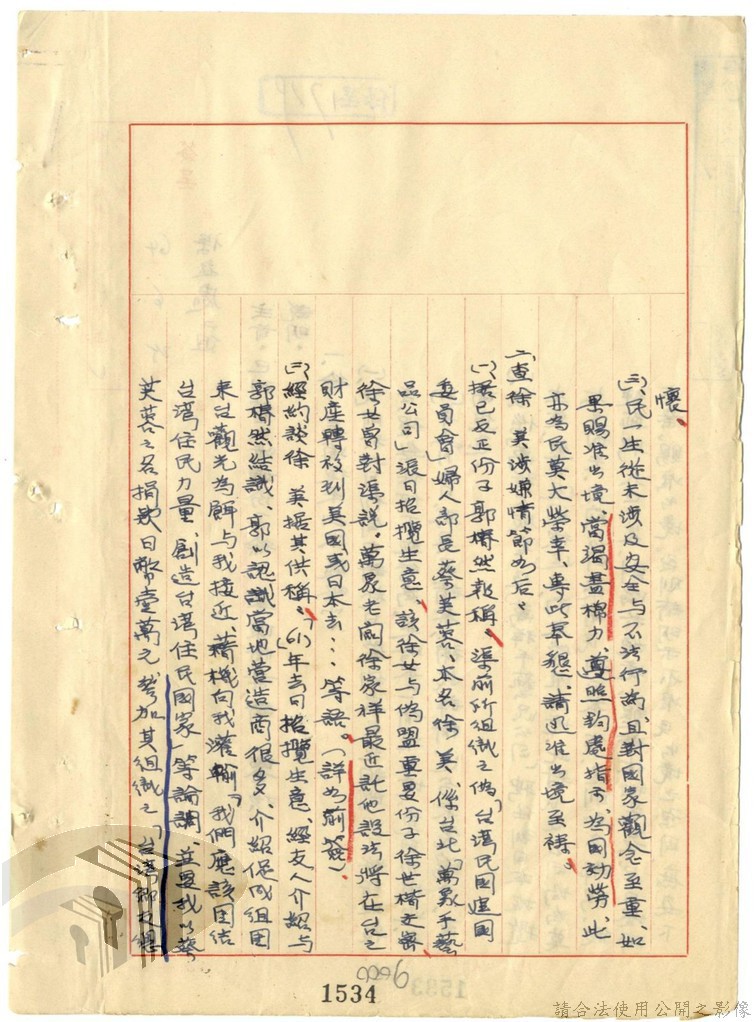 懷、
(三)、民一生從未涉及安全与不法行為、且對國家觀念至重、如
果賜准出境、當竭盡棉力、遵照鈞處指示、為國効勞、此
亦為民莫大榮幸、專此奉懇、請迅准出境至禱。
二、查徐 英涉嫌情節如后:
(一)、据已反正份子郭 然報稱、渠前所組織之偽「台湾民国建国
委員會」婦人部長蔡芙蓉、本名徐 英、係台北「萬象手藝
品公司」派日招攬生意、該徐女与偽盟重要份子徐世楷交密、
徐女曾對渠説、萬象老闆徐家祥最近託他設法將在台之
財產轉放到英國或日本去…等語。(詳如前簽)
(二)、經約談徐 英据其供稱:「61年去日招攬生意、經友人介紹与
郭 然結識、郭以認識當地營造商很多、介紹促成組团
來台觀光為餌与我接近、藉機向我灌輸「我們應該团结
台湾住民力量、創造台湾住民國家」等論調、並要我以蔡
芙蓉之名捐款日幣壹萬元、参加其組織之「台湾
0296
1534
請合法使用公開之影像